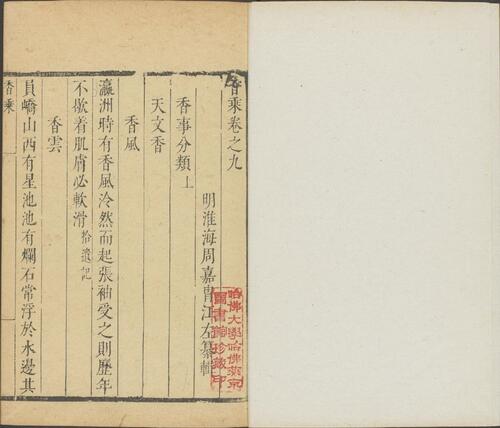 香乘卷之九
明淮海周嘉胄江左纂輯
香事分類上
天文香
香風
瀛洲時有香風泠然而起張袖受之則歷年
不歇着肌膚必軟滑拾遺記
香雲
員嶠山西有星池池有爛石常浮於水邊其
香乘
哈佛大學哈佛燕京
圖書館珍藏印